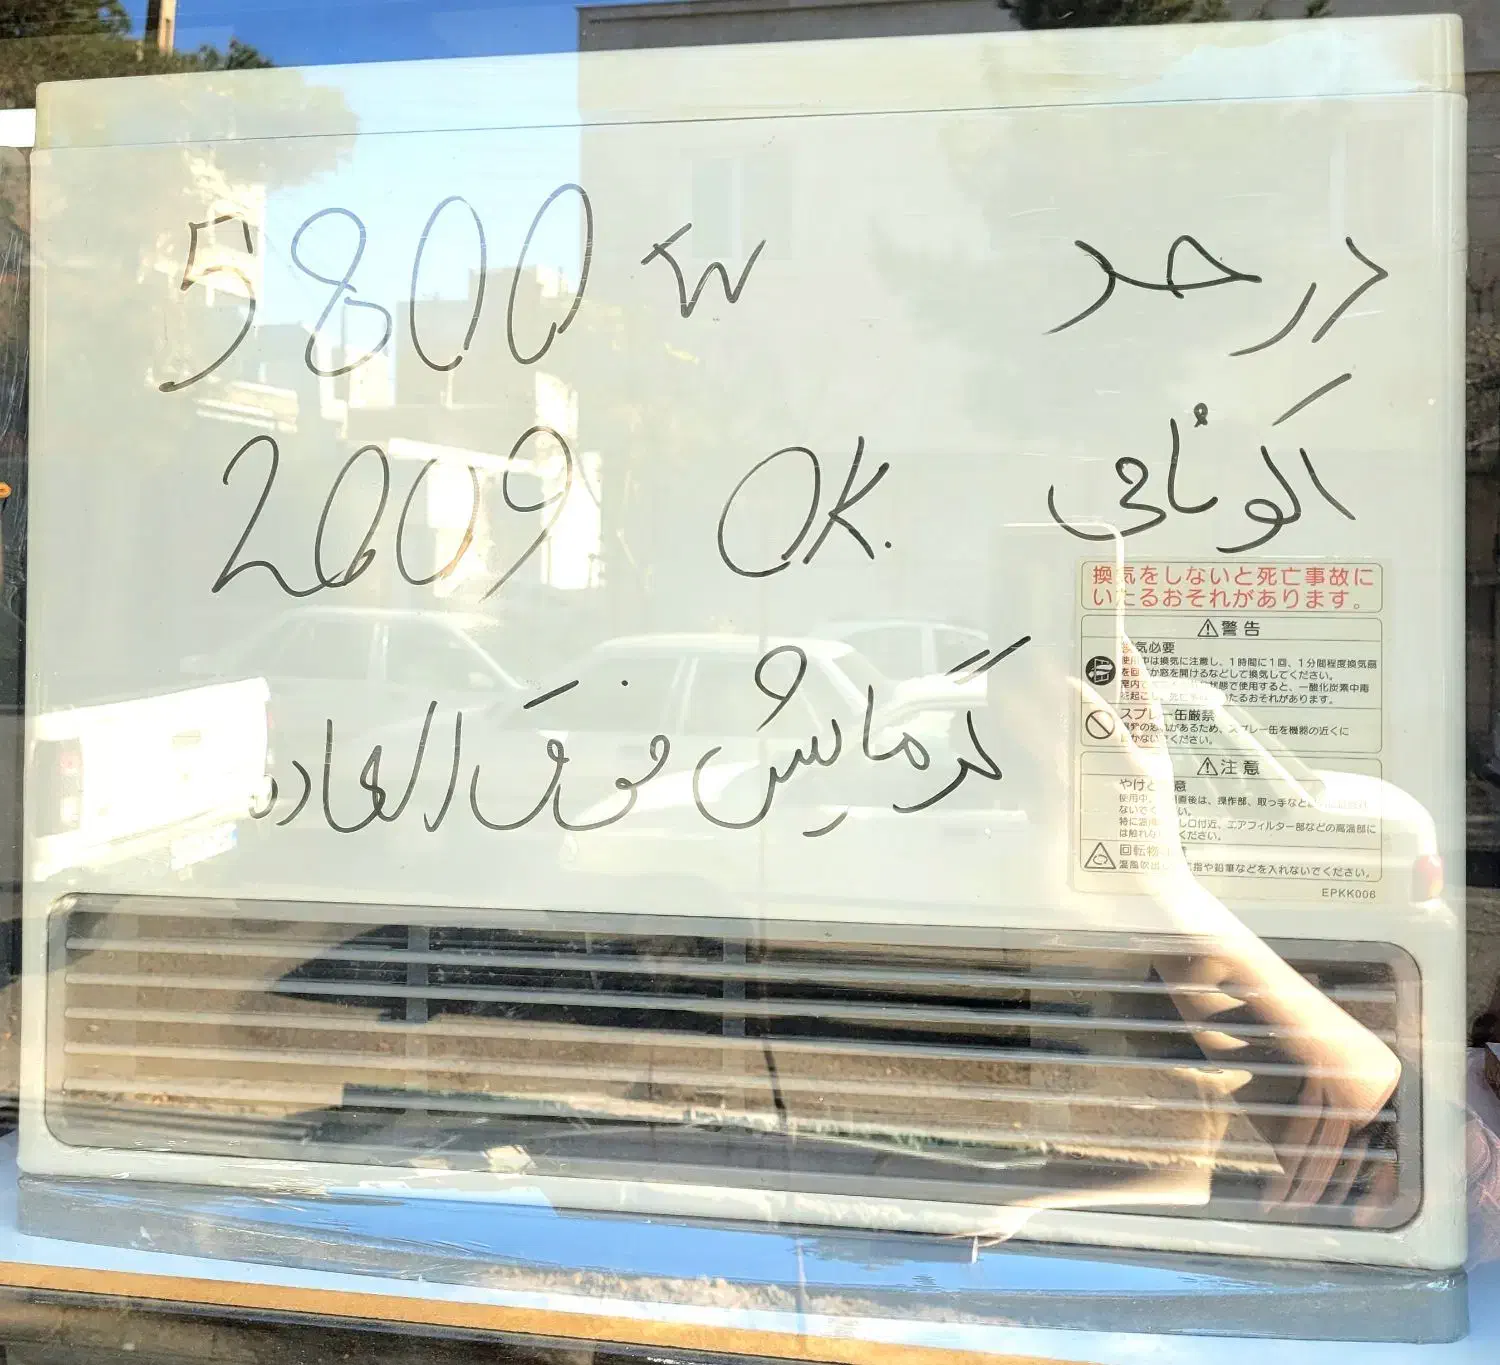 5800 W در حد
2009 OK. اکونای
گرمایش فوق العاده
換気をしないと死亡事故に
いたるおそれがあります。
⚠警告
換気必要
使用中は換気に注意し、1時間に1回、1分間程度換気扇
を回すか窓を開けるなどして換気してください。
たるおそれがあります。
スプレー缶厳禁
スプレー缶を機器の近くに
⚠注意
やけど
直後は、操作部、取っ手など
ないでください。
エアフィルター部などの高温部に
は触れないでください。
回転物
温風吹出 指や鉛筆などを入れないでください。
EPKK006